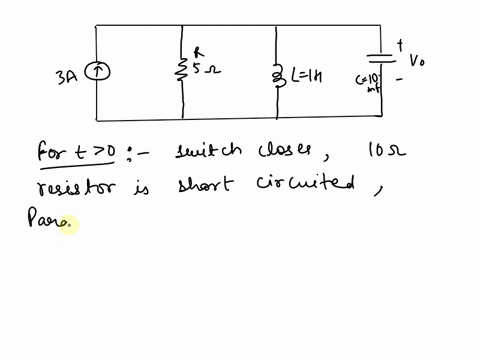 3A
R
5Ω
L=1H
C=10
mf
+
V₀
-
For t>0 :- switch closes, 10Ω
resistor is short circuited,
Para